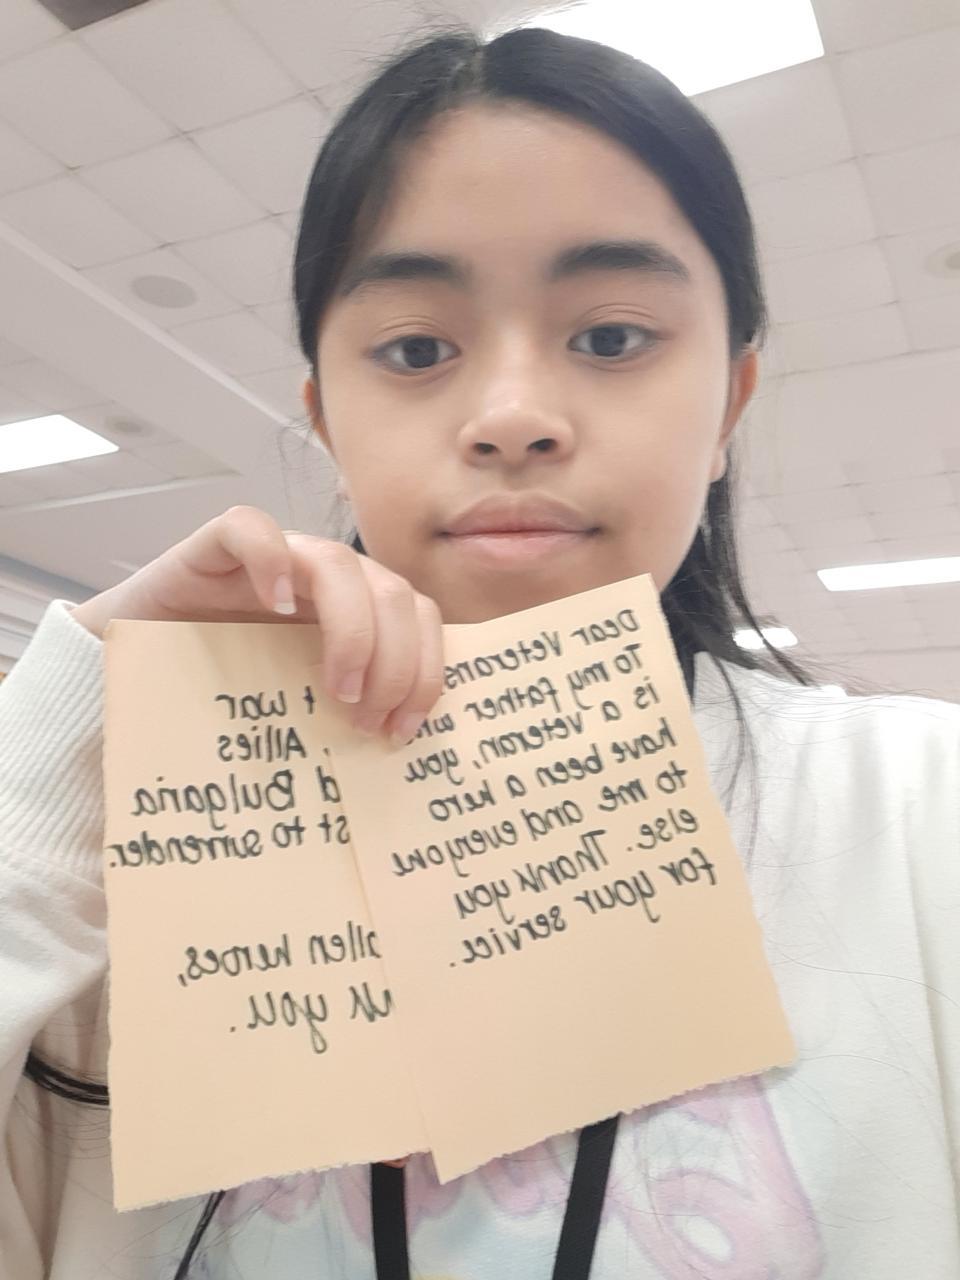 Dear Veterans,
To my father who
is a veteran, you
have been a hero
to me and everyone
else. Thank you
for your service.
t war
, Allies
d Bulgaria
st to surrender.
allen heroes,
nk you.